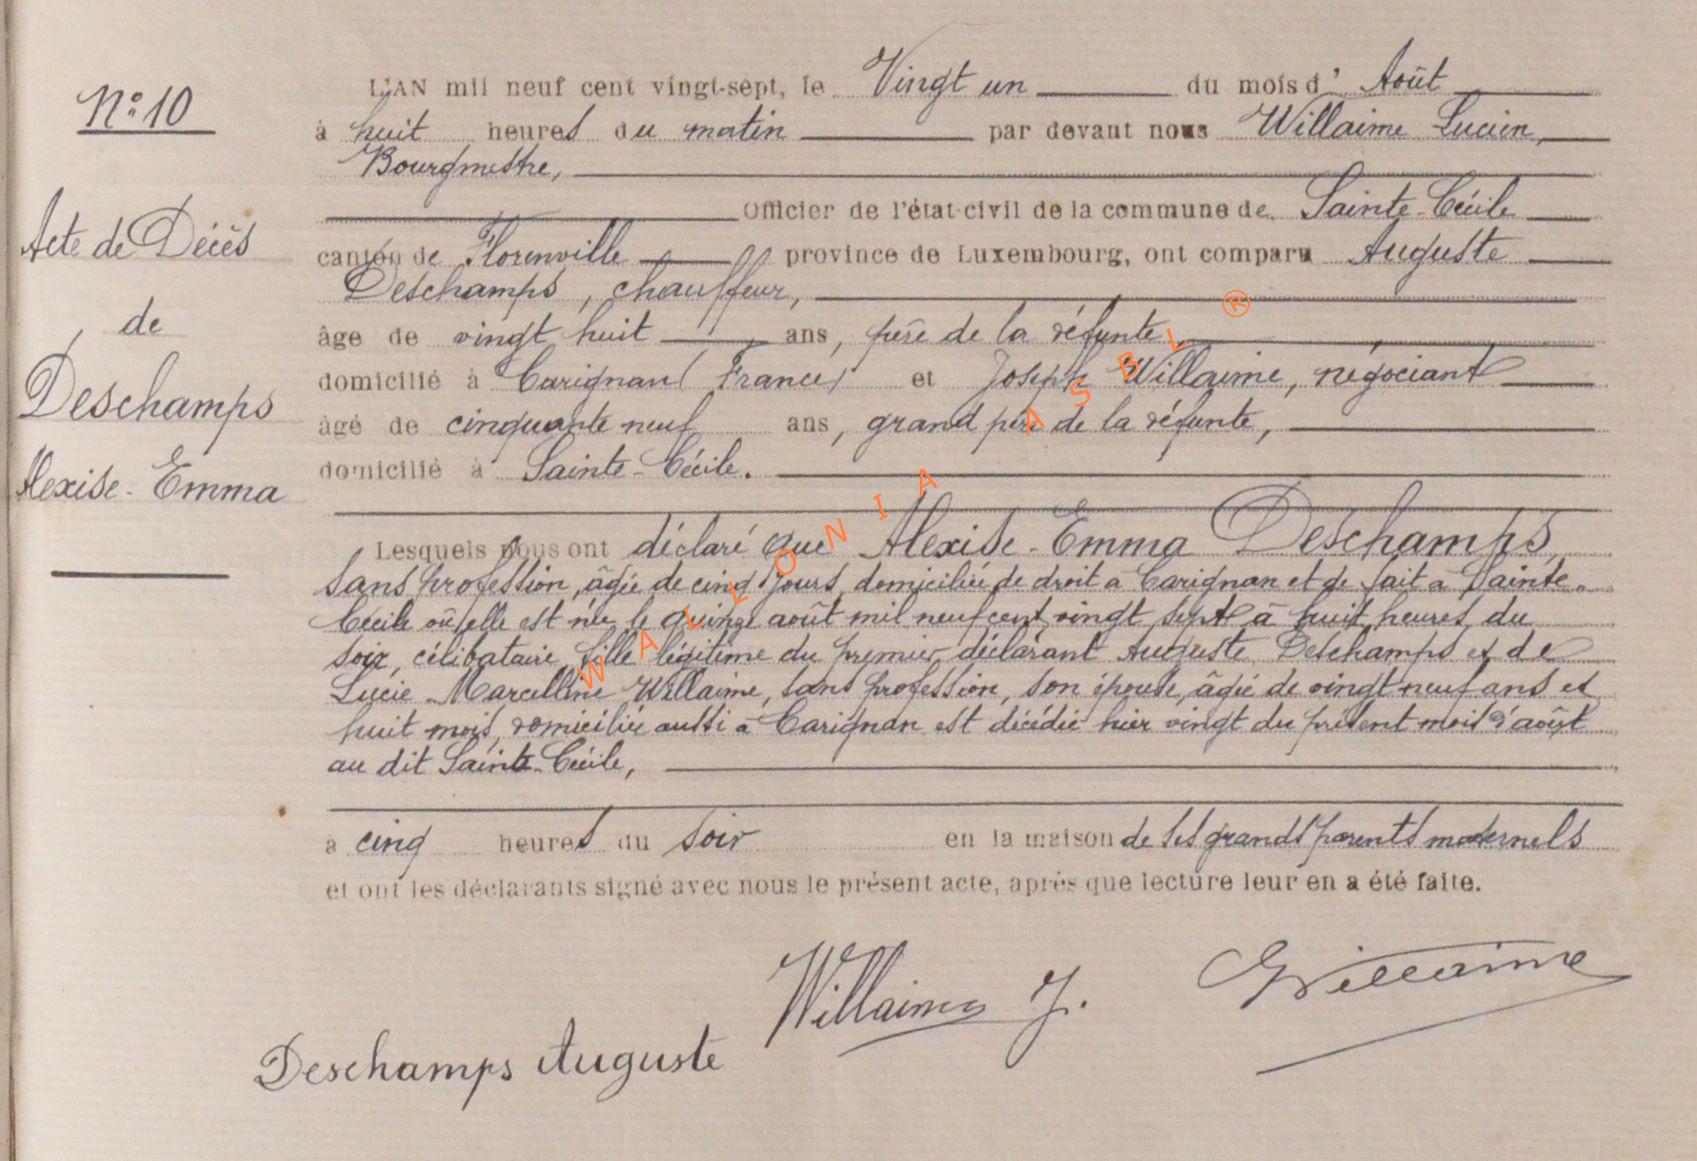 N° 10
Acte de Décès
de
Deschamps
Alexise-Emma
L'AN mil neuf cent vingt-sept, le Vingt un du mois d' Août
à huit heures du matin par devant nous Willaime Lucien,
Bourgmestre,
Officier de l'état-civil de la commune de Sainte-Cécile
canton de Florenville province de Luxembourg, ont comparu Auguste
Deschamps, chauffeur,
âge de vingt huit ans, père de la défunte,
domicilié à Carignan (France) et Joseph Willaime, négociant
âgé de cinquante neuf ans, grand père de la défunte,
domicilié à Sainte-Cécile.
Lesquels nous ont déclaré que Alexise-Emma Deschamps,
sans profession, âgée de cinq jours, domiciliée de droit à Carignan et de fait à Sainte-
Cécile où elle est née le quinze août mil neuf cent vingt sept à huit heures du
soir, célibataire, fille légitime du premier déclarant Auguste Deschamps et de
Lucie Marcelline Willaime, sans profession, son épouse, âgée de vingt neuf ans et
huit mois, domiciliée aussi à Carignan est décédée hier vingt du présent mois d'août
au dit Sainte-Cécile,
à cinq heures du soir en la maison de ses grands parents maternels
et ont les déclarants signé avec nous le présent acte, après que lecture leur en a été faite.
Willaime J.
Willaime
Deschamps Auguste
WALLONIA ASBL ®